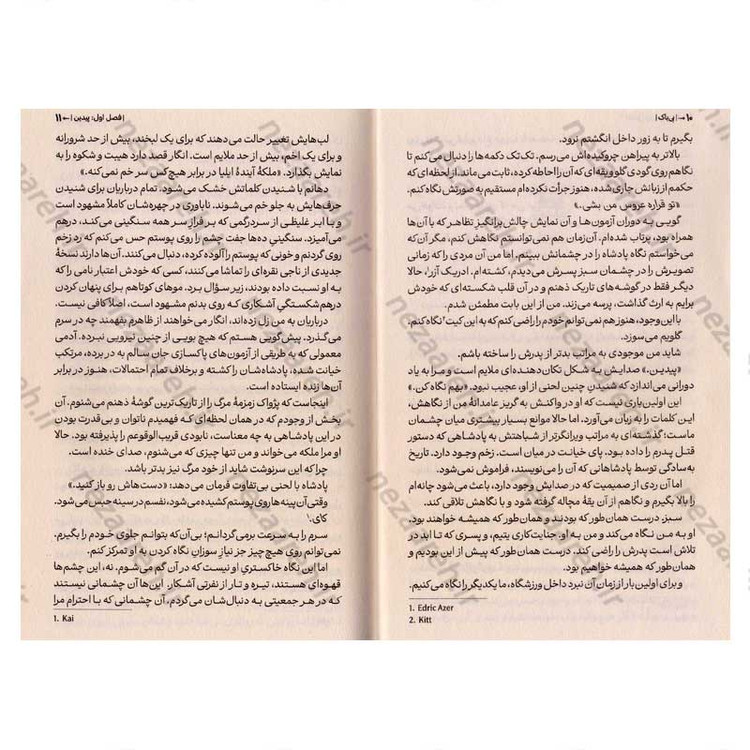 ۱۰ ← | بی‌باک |
بگیرم تا به زور داخل انگشتم نرود.
بالاتر به پیراهن چروکیده‌اش می‌رسم. تک‌تک دکمه‌ها را دنبال می‌کنم تا
نگاهم روی گودی گلو و یقه‌ای که آن را احاطه کرده، ثابت می‌ماند. از لحظه‌ای که
حکمم از زبانش جاری شده، هنوز جرأت نکرده‌ام مستقیم به صورتش نگاه کنم.
«تو قراره عروس من بشی.»
گویی به دوران آزمون‌ها و آن نمایش چالش‌برانگیز تظاهر که با آن‌ها
همراه بود، پرتاب شده‌ام. آن‌زمان هم نمی‌توانستم نگاهش کنم، مگر آن‌که
می‌خواستم نگاه پادشاه را در چشمانش ببینم. اما من آن مردی را که زمانی
تصویرش را در چشمان سبز پسرش می‌دیدم، کشته‌ام. ادریک آزر¹، حالا
دیگر فقط در گوشه‌های تاریک ذهنم و در آن قلب شکسته‌ای که خودش
برایم به ارث گذاشت، پرسه می‌زند. من از این بابت مطمئن شدم.
با این‌وجود، هنوز هم نمی‌توانم خودم را راضی کنم که به این کیت² نگاه کنم.
گلویم می‌سوزد.
شاید من موجودی به مراتب بدتر از پدرش را ساخته باشم.
«پیدین.» صدایش به شکل تکان‌دهنده‌ای ملایم است و مرا به یاد
دورانی می‌اندازد که شنیدن چنین لحنی از او، عجیب نبود. «بهم نگاه کن.»
این اولین‌باری نیست که او در واکنش به گریز عامدانهٔ من از نگاهش،
این کلمات را به زبان می‌آورد. اما حالا موانع بسیار بیشتری میان چشمان
ماست؛ گذشته‌ای به مراتب ویرانگرتر از شباهتش به پادشاهی که دستور
قتل پدرم را داده بود. پای خیانت در میان است. زخم وجود دارد. تاریخ
به‌سادگی توسط پادشاهانی که آن را می‌نویسند، فراموش نمی‌شود.
اما آن ردی از صمیمیت که در صدایش وجود دارد، باعث می‌شود چانه‌ام
را بالا بگیرم و نگاهم از آن یقهٔ مچاله گرفته شود و با نگاهش تلاقی کند.
سبز. درست همان‌طور که بودند و همان‌طور که همیشه خواهند بود.
او به من نگاه می‌کند و من به او. جنایت‌کاری یتیم، و پسری که تا ابد در
تلاش است پدرش را راضی کند. درست همان‌طور که پیش از این بودیم و
همان‌طور که همیشه خواهیم بود.
و برای اولین بار از زمان آن نبرد داخل ورزشگاه، ما یکدیگر را نگاه می‌کنیم.
1. Edric Azer
2. Kitt
| فصل اول: پیدین | → ۱۱
لب‌هایش تغییر حالت می‌دهند که برای یک لبخند، بیش از حد شرورانه
و برای یک اخم، بیش از حد ملایم است. انگار قصد دارد هیبت و شکوه را به
نمایش بگذارد. «ملکهٔ آیندهٔ ایلیا در برابر هیچ‌کس سر خم نمی‌کنه.»
دهانم با شنیدن کلماتش خشک می‌شود. تمام درباریان برای شنیدن
حرف‌هایش به جلو خم می‌شوند. ناباوری در چهره‌شان کاملاً مشهود است
و با ابر غلیظی از سردرگمی که بر فراز سر همه سنگینی می‌کند، درهم
می‌آمیزد. سنگینیِ ده‌ها جفت چشم را روی پوستم حس می‌کنم که رد زخم
روی گردنم و خونی که پوستم را آلوده کرده، دنبال می‌کنند. آن‌ها دارند نسخهٔ
جدیدی از ناجی نقره‌ای را تماشا می‌کنند، کسی که خودش اعتبار نامی را که
به او نسبت داده بودند، زیر سؤال برد. موهای کوتاهم برای پنهان کردن
درهم‌شکستگیِ آشکاری که روی بدنم مشهود است، اصلاً کافی نیست.
درباریان به من زل زده‌اند، انگار می‌خواهند از ظاهرم بفهمند چه در سرم
می‌گذرد. پیش‌گویی هستم که هیچ بویی از چنین نیرویی نبرده. آدمی
معمولی که به طریقی از آزمون‌های پاکسازی جان سالم به در برده، مرتکب
خیانت شده، پادشاه‌شان را کشته و برخلاف تمام احتمالات، هنوز در برابر
آن‌ها زنده ایستاده است.
اینجاست که پژواک زمزمهٔ مرگ را از تاریک‌ترین گوشهٔ ذهنم می‌شنوم. آن
بخش از وجودم که در همان لحظه‌ای که فهمیدم ناتوان و بی‌قدرت بودن
در این پادشاهی به چه معناست، نابودی قریب‌الوقوعم را پذیرفته بود. حالا
او مرا ملکه می‌خواند و من تنها چیزی که می‌شنوم، صدای خنده است.
چرا که این سرنوشت شاید از خود مرگ نیز بدتر باشد.
پادشاه با لحنی بی‌تفاوت فرمان می‌دهد: «دست‌هاش رو باز کنید.»
وقتی آن پینه‌ها روی پوستم کشیده می‌شود، نفسم در سینه حبس می‌شود.
کای.¹
سرم را به سرعت برمی‌گردانم؛ بی‌آن‌که بتوانم جلوی خودم را بگیرم.
نمی‌توانم روی هیچ چیز جز نیازِ سوزانِ نگاه کردن به او تمرکز کنم.
اما این نگاه خاکستریِ او نیست که در آن گم می‌شوم. نه، این چشم‌ها
قهوه‌ای هستند، تیره و تار از نفرتی آشکار. این‌ها آن چشمانی نیستند
که در هر جمعیتی به دنبال‌شان می‌گردم، آن چشمانی که با احترام مرا
1. Kai
nezaareh.ir